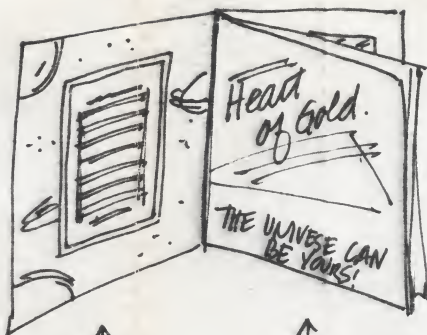 Head
of Gold.
THE UNIVESE CAN
BE YOURS!